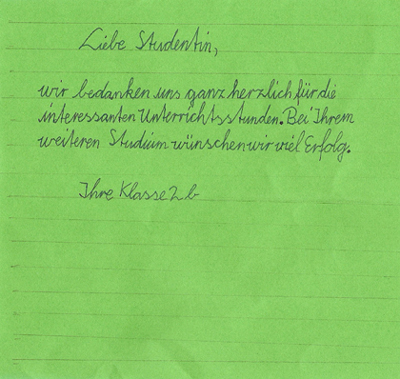 Liebe Studentin,
wir bedanken uns ganz herzlich für die
interessanten Unterrichtsstunden. Bei Ihrem
weiteren Studium wünschen wir viel Erfolg.
Ihre Klasse 2b